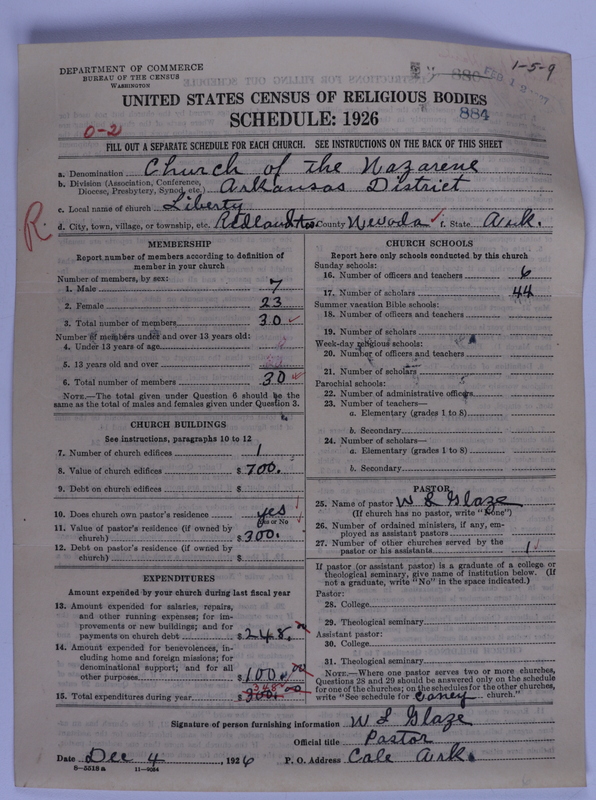 1-5-9
DEPARTMENT OF COMMERCE
BUREAU OF THE CENSUS
WASHINGTON
UNITED STATES CENSUS OF RELIGIOUS BODIES
SCHEDULE: 1926
884
0-2
FILL OUT A SEPARATE SCHEDULE FOR EACH CHURCH. SEE INSTRUCTIONS ON THE BACK OF THIS SHEET
a. Denomination Church of the Nazarene
b. Division (Association, Conference, Diocese, Presbytery, Synod, etc.) Arkansas District
c. Local name of church Liberty
d. City, town, village, or township, etc. County Nevada f. State Ark.
R.
MEMBERSHIP
Report number of members according to definition of
member in your church
Number of members, by sex:
1. Male 7
2. Female 23
3. Total number of members 30
Number of members under and over 13 years old:
4. Under 13 years of age
5. 13 years old and over
6. Total number of members 30
NOTE.—The total given under Question 6 should be the
same as the total of males and females given under Question 3.
CHURCH BUILDINGS
See instructions, paragraphs 10 to 12
7. Number of church edifices 1
8. Value of church edifices $700.
9. Debt on church edifices $
10. Does church own pastor's residence yes
Yes or No
11. Value of pastor's residence (if owned by
church) $300.
12. Debt on pastor's residence (if owned by
church) $
EXPENDITURES
Amount expended by your church during last fiscal year
13. Amount expended for salaries, repairs,
and other running expenses; for im-
provements or new buildings; and for
payments on church debt $248.00
14. Amount expended for benevolences, in-
cluding home and foreign missions; for
denominational support; and for all
other purposes $100.00
15. Total expenditures during year $ 348.00
CHURCH SCHOOLS
Report here only schools conducted by this church
Sunday schools:
16. Number of officers and teachers 6
17. Number of scholars 44
Summer vacation Bible schools:
18. Number of officers and teachers
19. Number of scholars
Week-day religious schools:
20. Number of officers and teachers
21. Number of scholars
Parochial schools:
22. Number of administrative officers
23. Number of teachers—
a. Elementary (grades 1 to 8)
b. Secondary
24. Number of scholars—
a. Elementary (grades 1 to 8)
b. Secondary
PASTOR
25. Name of pastor W L Glaze
(If church has no pastor, write "None")
26. Number of ordained ministers, if any, em-
ployed as assistant pastors
27. Number of other churches served by the
pastor or his assistants 1
If pastor (or assistant pastor) is a graduate of a college or
theological seminary, give name of institution below. (If
not a graduate, write "No" in the space indicated.)
Pastor:
28. College
29. Theological seminary
Assistant pastor:
30. College
31. Theological seminary
NOTE.—Where one pastor serves two or more churches,
Questions 28 and 29 should be answered only on the schedule
for one of the churches; on the schedules for the other churches,
write "See schedule for Caney church."
Signature of person furnishing information W L Glaze
Official title Pastor
Date Dec 4, 1926 P. O. Address Cale Ark.
6—5518 a 11—9064